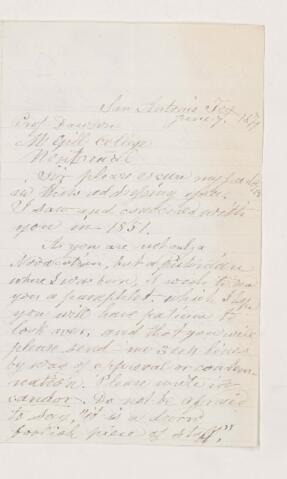 San Antonio Tex
June 7 1879
Prof Dawson
McGill College
Montreal
Sir please excuse my
in thus addressing you.
I saw and conversed with
you in 1851.
As you are not only a
Nova Scotian, but a Pictonian
where I was born, I wish to
you a pamphlet, which I hope
you will have patience to
look over, and that you will
please send me a few lines
by way of approval or condem-
nation. Please write in
candor. Do not be afraid
to say, "it is a
foolish piece of stuff."